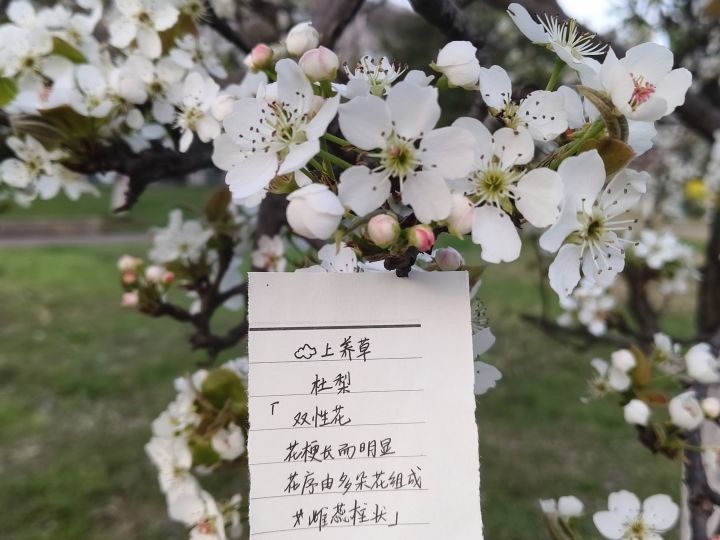 上养草
杜梨
「双性花
花梗长而明显
花序由多朵花组成
雌蕊柱状」